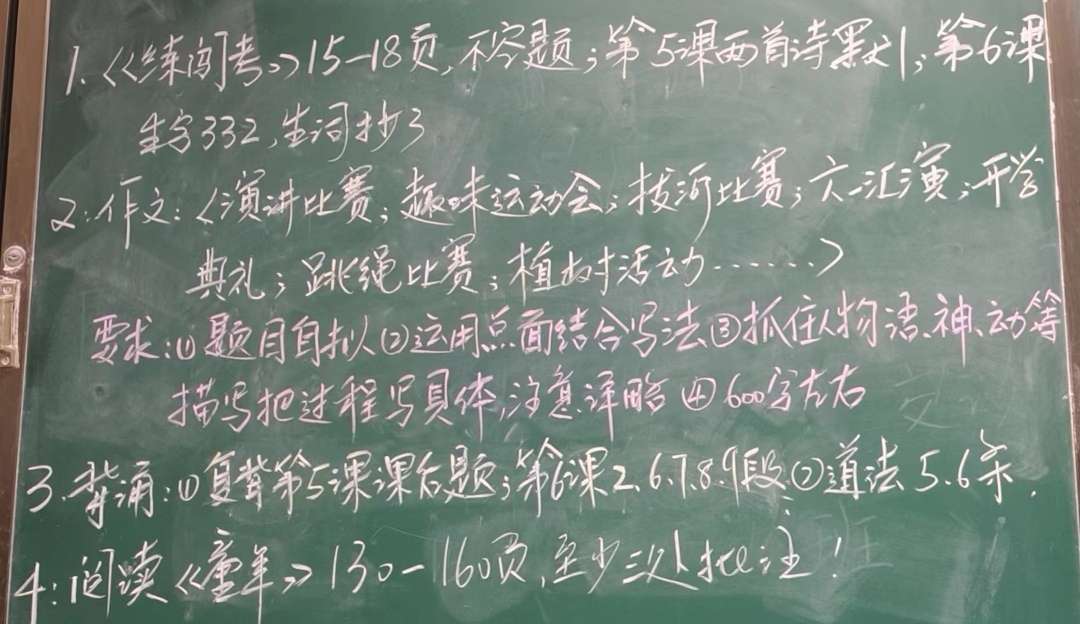 1.《练闯考》15-18页,不空题;第5课两首诗默1;第6课
生字332,生词抄3
2.作文:〈演讲比赛;趣味运动会;拔河比赛;六一汇演;开学
典礼;跳绳比赛;植树活动……〉
要求:①题目自拟②运用点面结合写法③抓住人物语、神、动等
描写把过程写具体,注意详略④600字左右
3.背诵:①复背第5课课后题;第6课2.6.7.8.9段②道法5.6条.
4:阅读《童年》130-160页,至少三次批注!